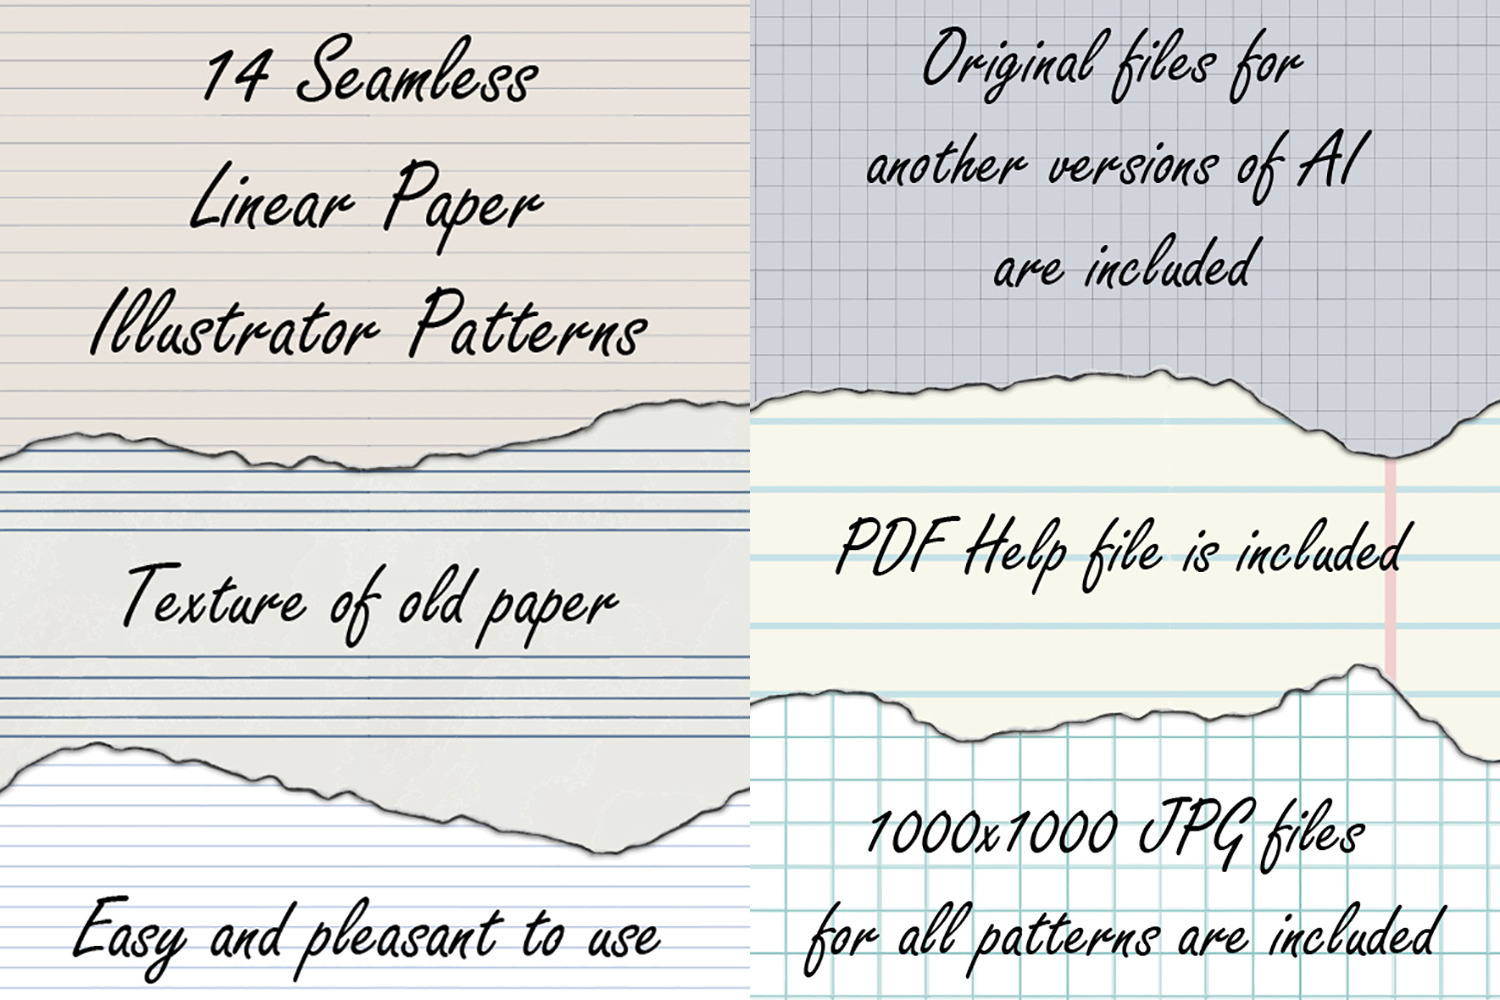 14 Seamless
Linear Paper
Illustrator Patterns
Texture of old paper
Easy and pleasant to use
Original files for
another versions of AI
are included
PDF Help file is included
1000x1000 JPG files
for all patterns are included